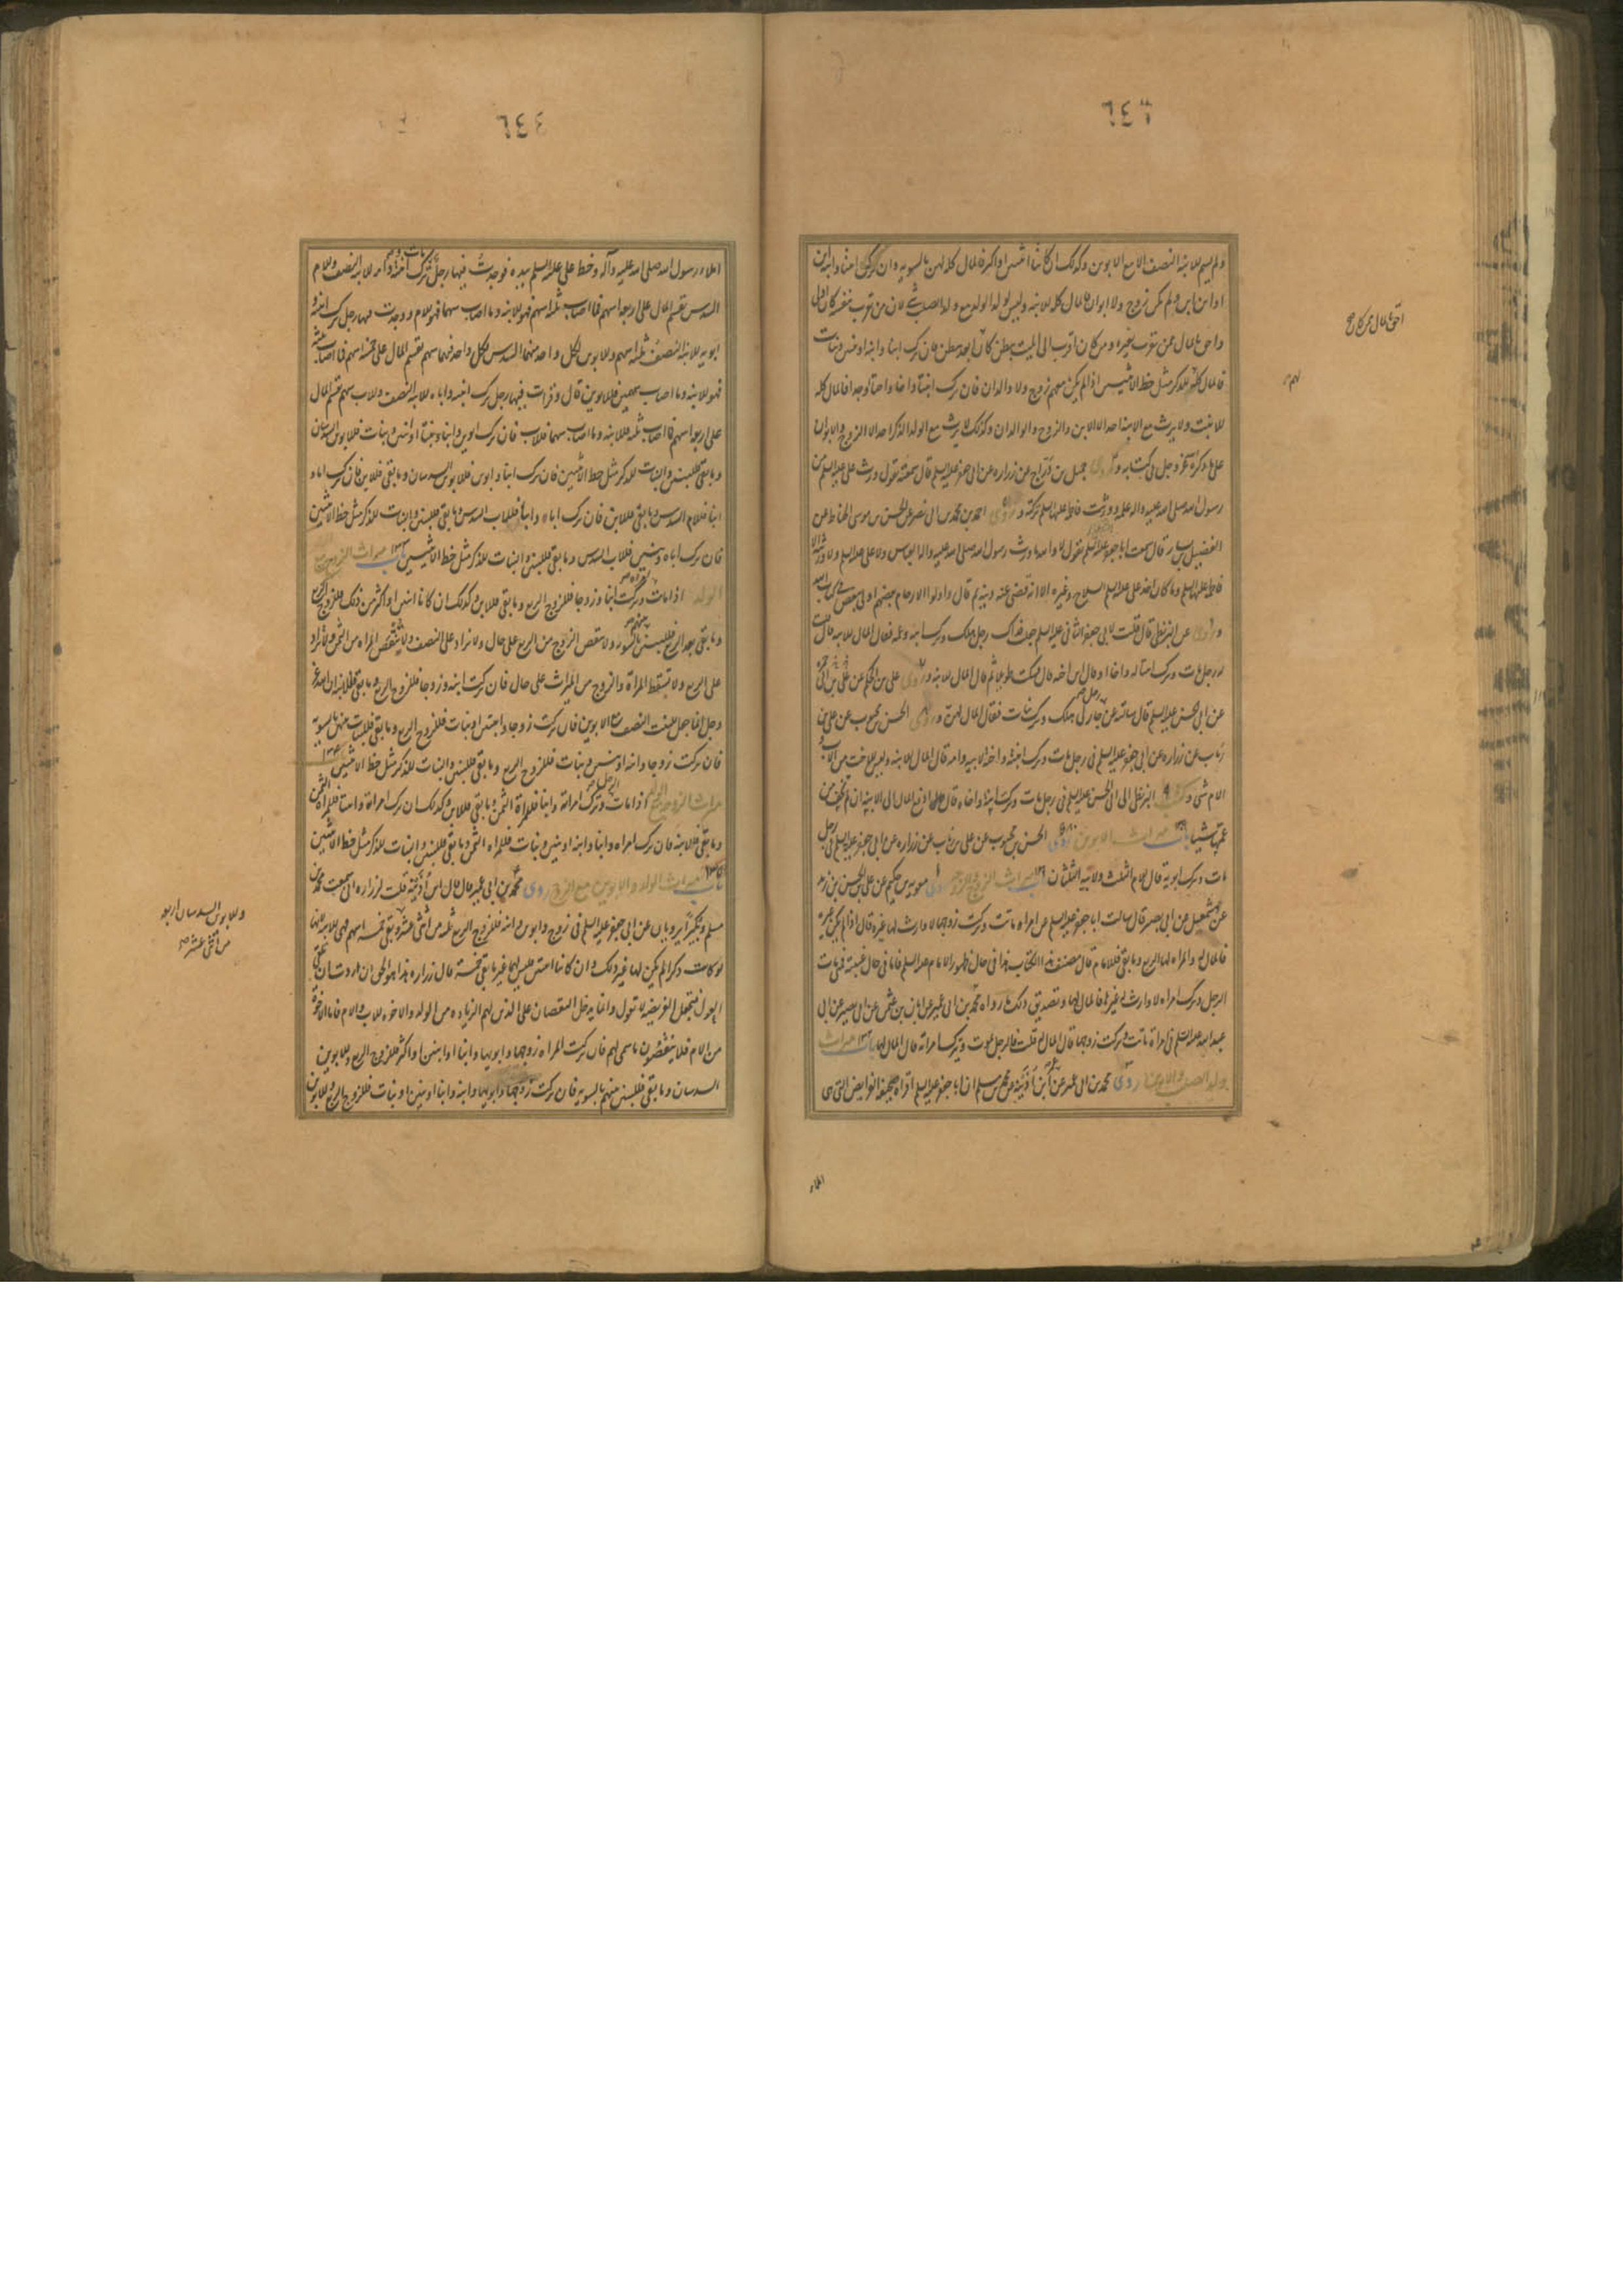 ٦٤٣
ولم يسم للابنة النصف الا مع الابوين وكذلك ان كانتا اثنتين او اكثر فالمال كله لهن بالسوية وان ترك ابنا وابنة ابن
او ابن ابن ولم يكن زوج ولا ابوان فالمال كله للابنة وليس لولد الولد مع ولد الصلب شئ لان من تقرب بنفسه كان اولى
واحق بالمال ممن تقرب بغيره ومن كان اقرب الى الميت ببطن كان ابعد ببطن فان ترك ابنا وابنة او بنين وبنات
فالمال كله للذكر مثل حظ الانثيين اذا لم يكن معهم زوج ولا والدان فان ترك ابنتا واخا واختا وجدا فالمال كله
للابنة ولا يرث مع الابنة احد الا الابن والزوج والوالدان وكذلك لا يرث مع الولد الذكر احد الا الزوج والابوان
على ما ذكره الله عز وجل في كتابه وروى جميل بن دراج عن زرارة عن ابى جعفر عليه السلم قال سمعته يقول ورث على عليه السلم من
رسول الله صلى الله عليه واله علمه وورثت فاطمة عليها السلم تركته وروى احمد بن محمد بن ابى نصر عن الحسن بن موسى الحناط عن
الفضيل بن يسار قال سمعت ابا جعفر عليه السلم يقول لا والله ما ورث رسول الله صلى الله عليه واله العباس ولا على عليه السلم ولا ورثته الا
فاطمة عليها السلم وما كان اخذ على عليه السلم السلاح وغيره الا انه قضى عنه دينه ثم قال واولوا الارحام بعضهم اولى ببعض في كتاب الله
وروى عن البزنطى قال قلت لابى جعفر الثانى عليه السلم جعلت فداك رجل هلك وترك ابنته وعمه فقال المال للابنة قال قلت
له رجل مات وترك ابنة له واخا او قال ابن اخيه قال فسكت طويلا ثم قال المال للابنة وروى على بن الحكم عن على بن ابى حمزة
عن ابى الحسن عليه السلم قال سالته عن جار لى هلك وترك بنات فقال المال لهن وروى الحسن بن محبوب عن على بن
رئاب عن زرارة عن ابى جعفر عليه السلم فى رجل مات وترك ابنته واخته لابيه وامه قال المال للابنة وليس للاخت من الاب و
الام شئ وكتب البزنطى الى ابى الحسن عليه السلم فى رجل مات وترك ابنته واخاه قال ادفع المال الى الابنة ان لم تخف من
عمها شيئا باب ميراث الابوين روى الحسن بن محبوب عن على بن رئاب عن زرارة عن ابى جعفر عليه السلم فى رجل
مات وترك ابويه قال للام الثلث ولابيه الثلثان باب ميراث الزوج والزوجة روى معوية بن حكيم عن على بن الحسن بن زيد
عن مشمعل عن ابى بصير قال سالت ابا جعفر عليه السلم عن امراة ماتت وتركت زوجها لا وارث لها غيره قال اذا لم يكن غيره
فالمال له والمراة لها الربع وما بقى فللامام قال مصنف هذا الكتاب هذا فى حال ظهور الامام عليه السلم فاما فى حال غيبته فمتى مات
الرجل وترك امراة لا وارث له غيرها فالمال لها وتصديق ذلك ما رواه محمد بن ابى عمير عن ابان بن عثمن عن ابى بصير عن ابى
عبد الله عليه السلم فى امراة ماتت وتركت زوجها قال المال له قلت فالرجل يموت ويترك امراته قال المال لها باب ميراث
ولد الصلب والابوين روى محمد بن ابى عمير عن ابن اذينة عن محمد بن مسلم ان ابا جعفر عليه السلم اقراه صحيفة الفرائض التى هى
احق بالمال ممن كان صح
املاء
٦٤٤
املاء رسول الله صلى الله عليه وآله وخط على عليه السلم بيده فوجدت فيها رجل ترك ابنته وامه للابنة النصف وللام
السدس يقسم المال على اربعة اسهم فما اصاب ثلثة اسهم فهو للابنة وما اصاب سهما فهو للام ووجدت فيها رجل ترك ابنته و
ابويه للابنة النصف ثلثة اسهم وللابوين لكل واحد منهما السدس لكل واحد منهما سهم يقسم المال على خمسة اسهم فما اصاب ثلثة
فهو للابنة وما اصاب سهمين فللابوين قال وقرات فيها رجل ترك ابنته واباه للابنة النصف وللاب سهم يقسم المال
على اربعة اسهم فما اصاب ثلثة فللابنة وما اصاب سهما فللاب فان ترك ابوين وابنا وبنتا او بنين وبنات فللابوين السدسان
وما بقى فللبنين والبنات للذكر مثل حظ الانثيين فان ترك ابنا وابوين فللابوين السدسان وما بقى فللابن فان ترك اما و
ابنا فللام السدس وما بقى فللابن فان ترك اباه وابنا فللاب السدس وما بقى فللبنين والبنات للذكر مثل حظ الانثيين
فان ترك اباه وبنين فللاب السدس وما بقى فللبنين والبنات للذكر مثل حظ الانثيين باب ميراث الزوج مع
الولد اذا ماتت امراة وتركت ابنا وزوجا فللزوج الربع وما بقى فللابن وكذلك ان كانا اثنين او اكثر من ذلك فللزوج الربع
وما بقى بعد الربع فللبنين بينهم بالسوية ولا ينقص الزوج من الربع على حال ولا يزاد على النصف ولا ينقص المراة من الثمن ولا تزاد
على الربع ولا تسقط المراة والزوج من الميراث على حال فان تركت ابنة وزوجا فللزوج الربع وما بقى فللابنة لان الله عز
وجل انما جعل للبنت النصف مع الابوين فان تركت زوجا وابنتين او بنات فللزوج الربع وما بقى فللبنات بينهن بالسوية
فان تركت زوجا وابنة او بنين وبنات فللزوج الربع وما بقى فللبنين والبنات للذكر مثل حظ الانثيين باب
ميراث الزوجة مع الولد اذا مات الرجل وترك امراة وابنا فللمراة الثمن وما بقى فللابن وكذلك ان ترك امراة وابنتا فللمراة الثمن
وما بقى فللابنة فان ترك امراة وابنا وابنة او بنين وبنات فللمراة الثمن وما بقى فللبنين والبنات للذكر مثل حظ الانثيين
باب ميراث الولد والابوين مع الزوج روى محمد بن ابى عمير قال قال ابن اذينة قلت لزرارة انى سمعت محمد بن
مسلم وبكيرا يرويان عن ابى جعفر عليه السلم فى زوج وابوين وابنة فللزوج الربع ثلثة من اثنى عشر وبقى خمسة اسهم فهى للابنة لانها
لو كانت ذكرا لم يكن لها غير ذلك وان كانتا ابنتين فليس لهما غير ما بقى خمسة قال زرارة هذا هو الحق ان اردت ان تلقى
العول فتجعل الفريضة لا تعول وانما يدخل النقصان على الذين لهم الزيادة من الولد والاخوة للاب والام فاما الاخوة
من الام فلا ينقصون مما سمى لهم فان تركت المراة زوجها وابويها وابنا او ابنين او اكثر فللزوج الربع وللابوين
السدسان وما بقى فللبنين بينهم بالسوية فان تركت زوجها وابويها وابنة وابنا او بنين وبنات فللزوج الربع وللابوين
وللابوين السدسان اربعة
من اثنى عشر صح